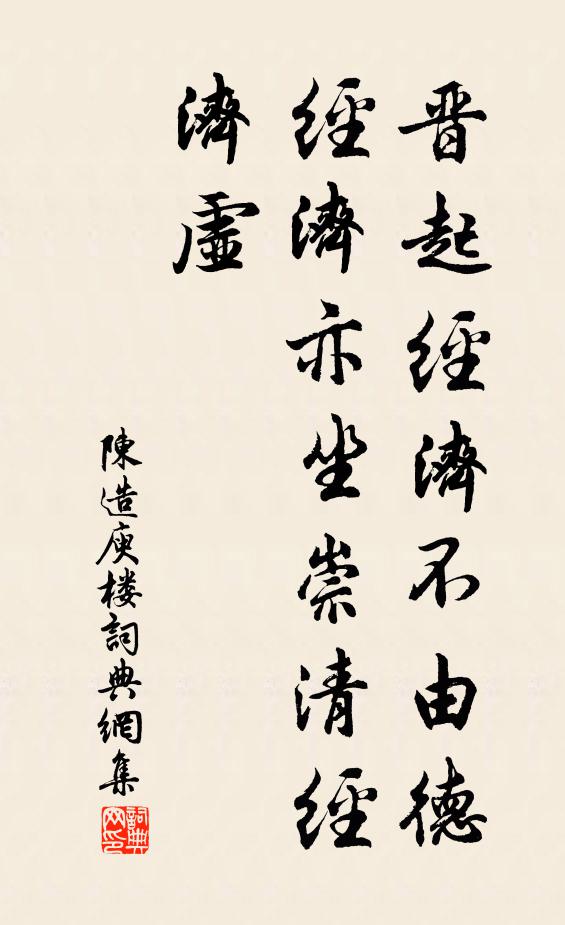 晋起經濟不由德
經濟亦坐崇清經
濟虛
陳造庾楼詞典網集
詞典网印